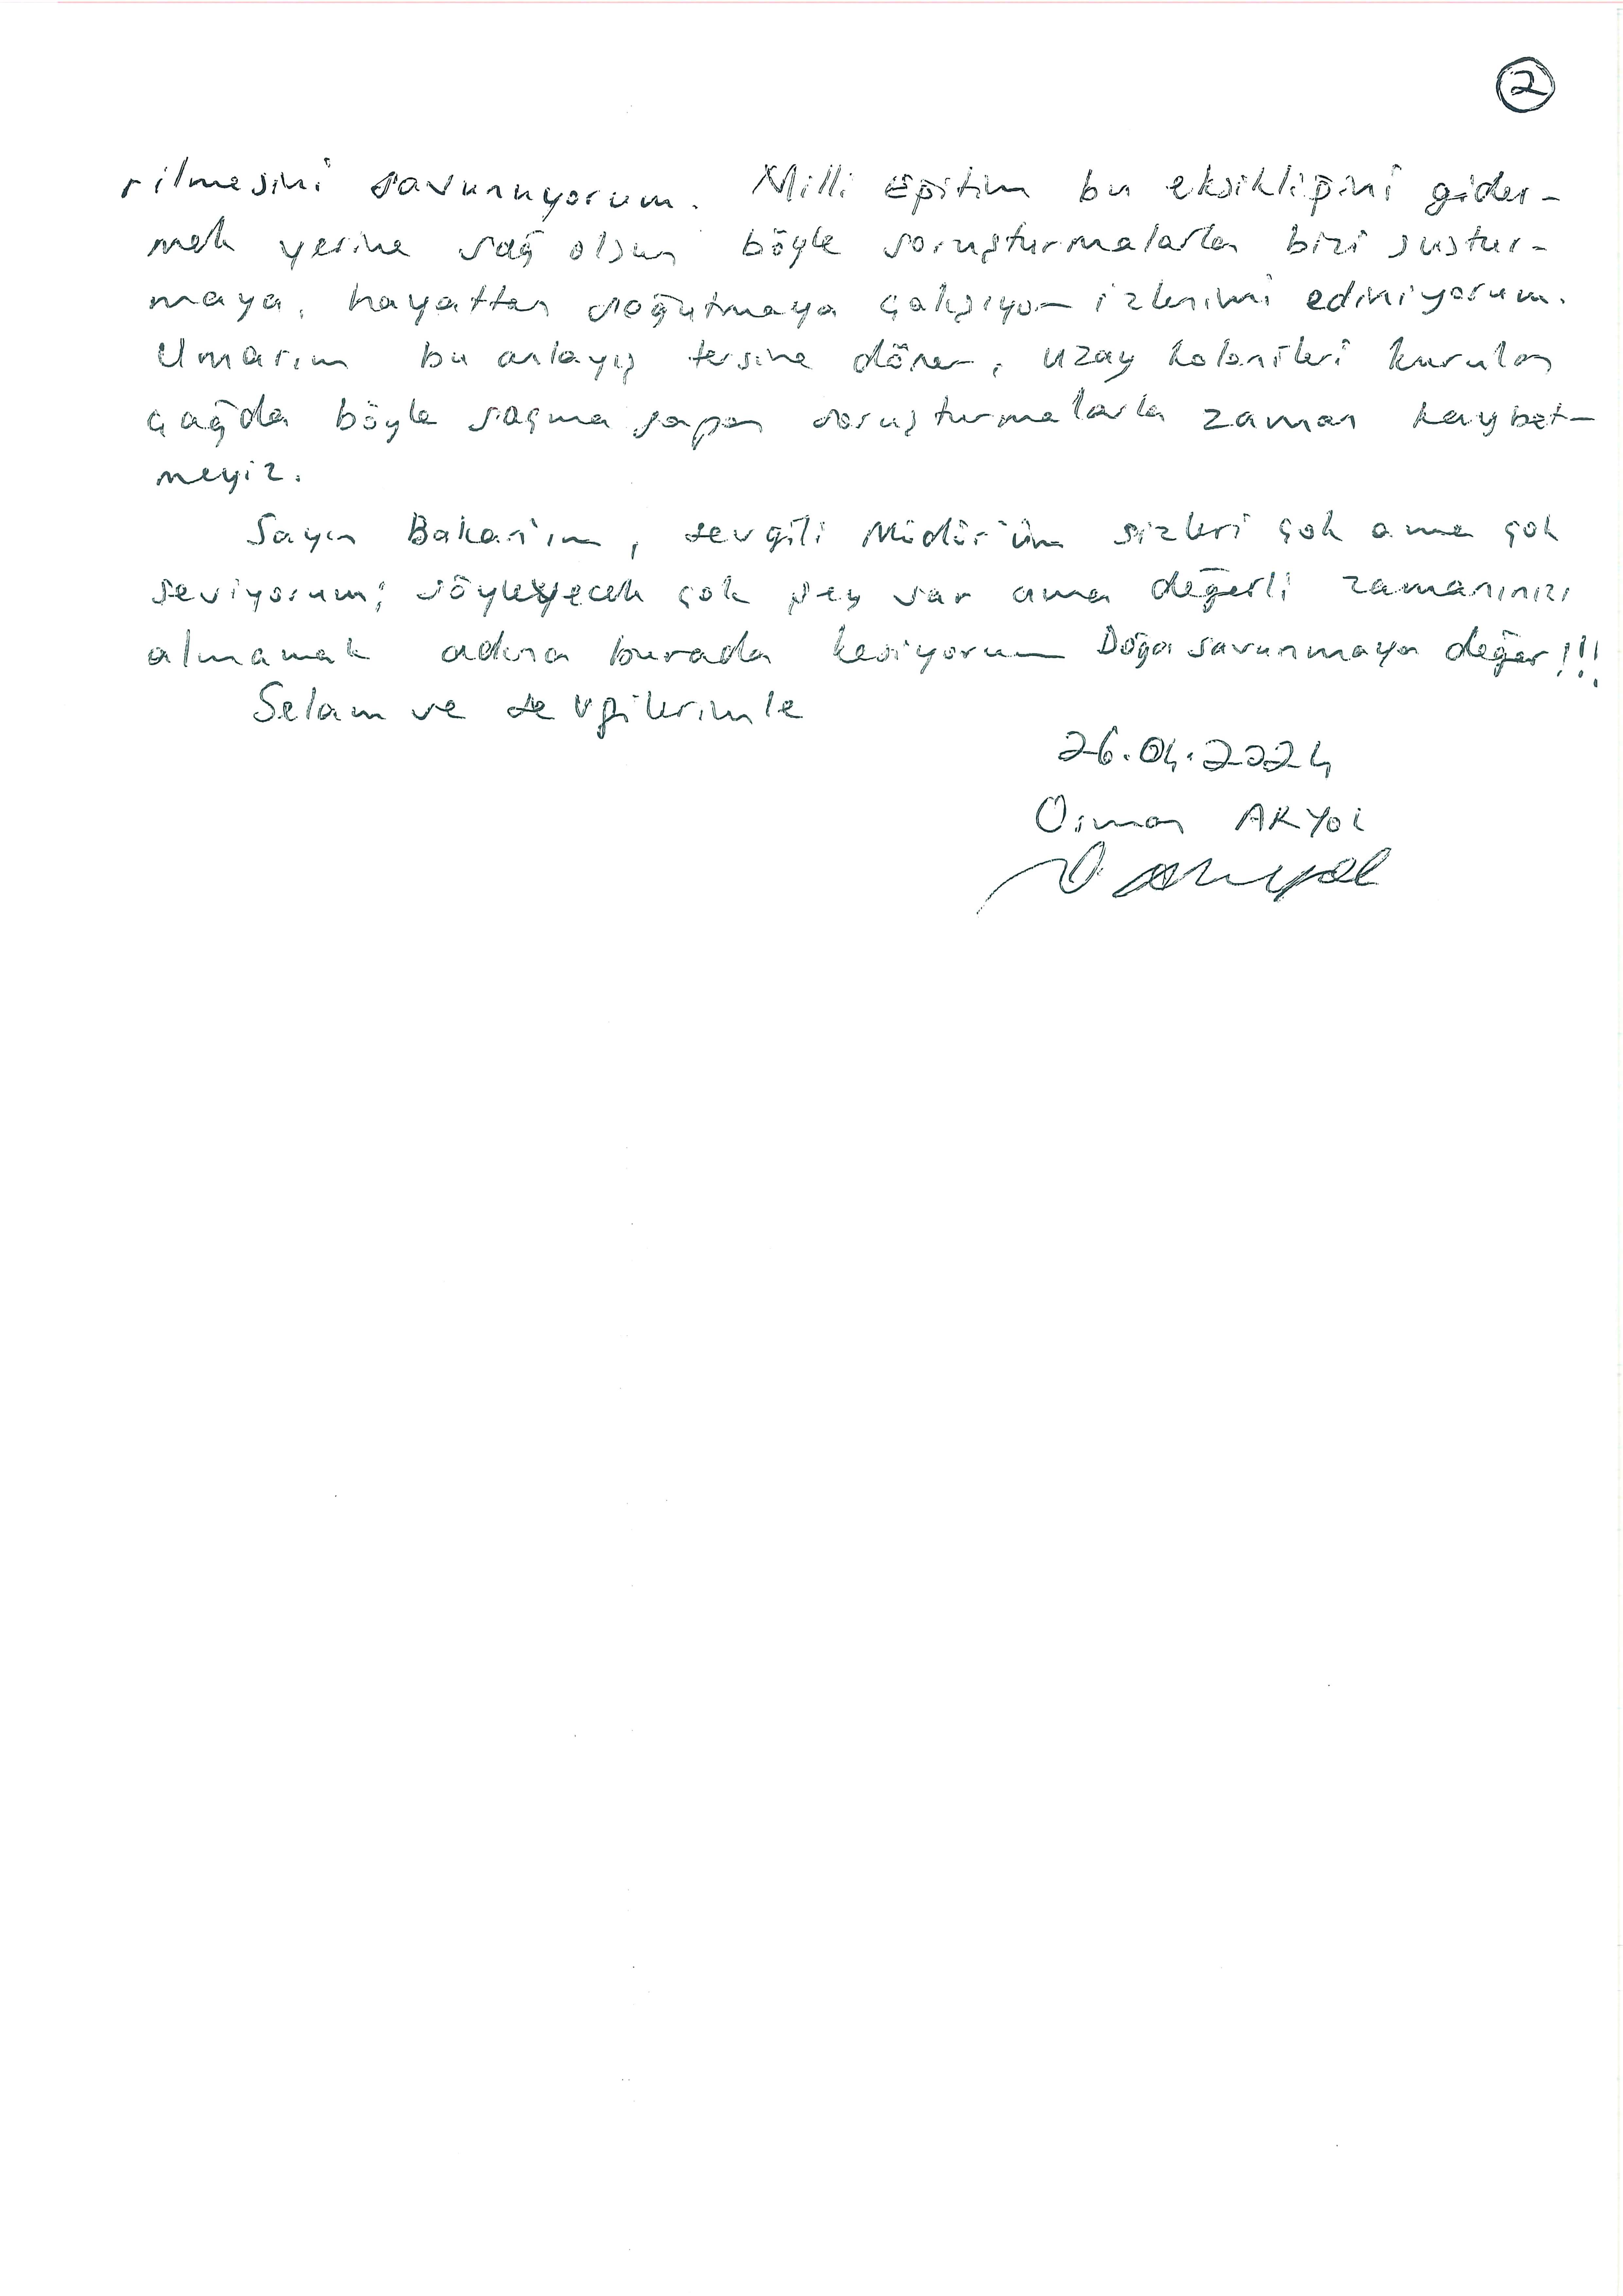 2
rilmesini savunuyorum. Milli Eğitim bu eksikliğini gider-
mek yerine sağ olsun böyle soruşturmalarla bizi sustur-
maya, hayattan soğutmaya çalışıyor izlenimi ediniyorum.
Umarım bu anlayış tersine döner, uzay kolonileri kurulan
çağda böyle saçma sapan soruşturmalarla zaman kaybet-
meyiz.
Sayın Bakan'ım, sevgili Müdür'üm sizleri çok ama çok
seviyorum; söyleyecek çok şey var ama değerli zamanınızı
almamak adına burada kesiyorum Doğa savunmaya değer!!!
Selam ve sevgilerimle
26.04.2024
Osman AKYOL
O Akyol